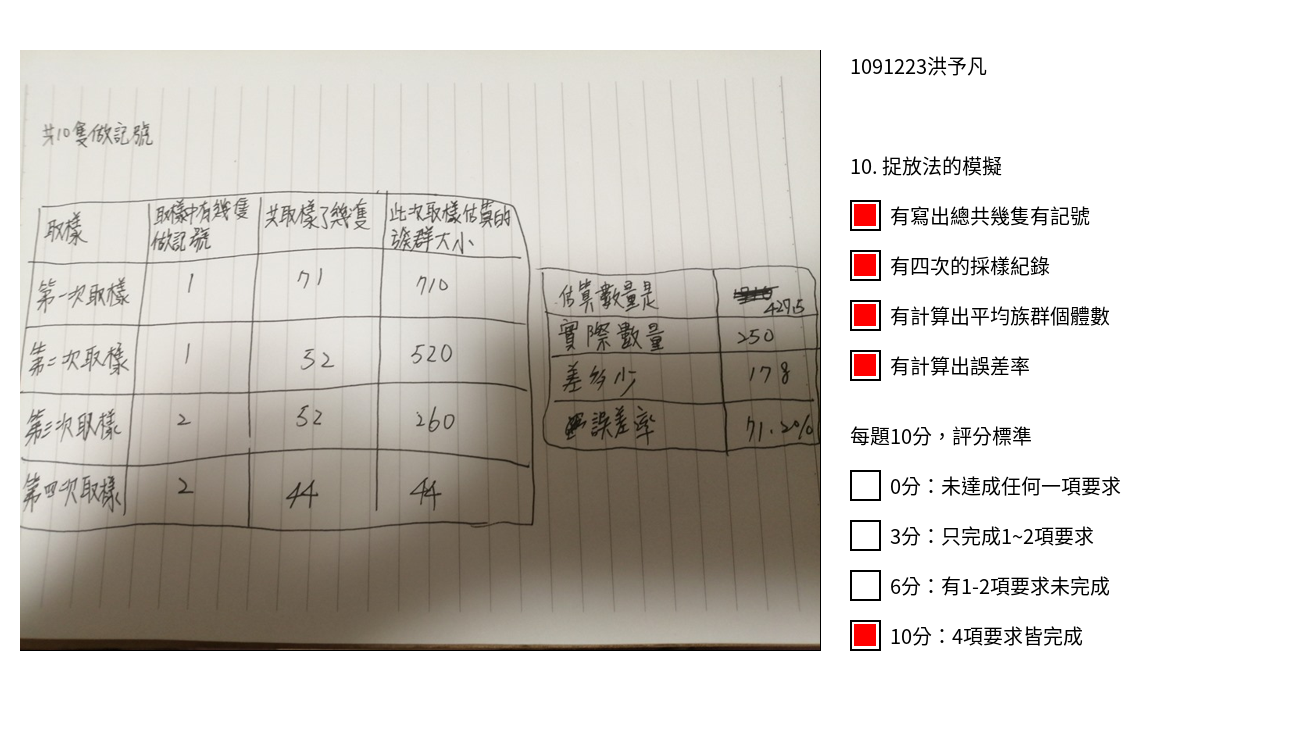 共10隻做記號
取樣 取樣中有幾隻做記號 共取樣了幾隻 此次取樣估算的族群大小
第一次取樣 1 71 710
第二次取樣 1 52 520
第三次取樣 2 52 260
第四次取樣 2 44 44
估算數量是 427.5
實際數量 250
差多少 178
誤差率 71.2%
1091223洪予凡
10. 捉放法的模擬
有寫出總共幾隻有記號
有四次的採樣紀錄
有計算出平均族群個體數
有計算出誤差率
每題10分，評分標準
0分：未達成任何一項要求
3分：只完成1~2項要求
6分：有1-2項要求未完成
10分：4項要求皆完成